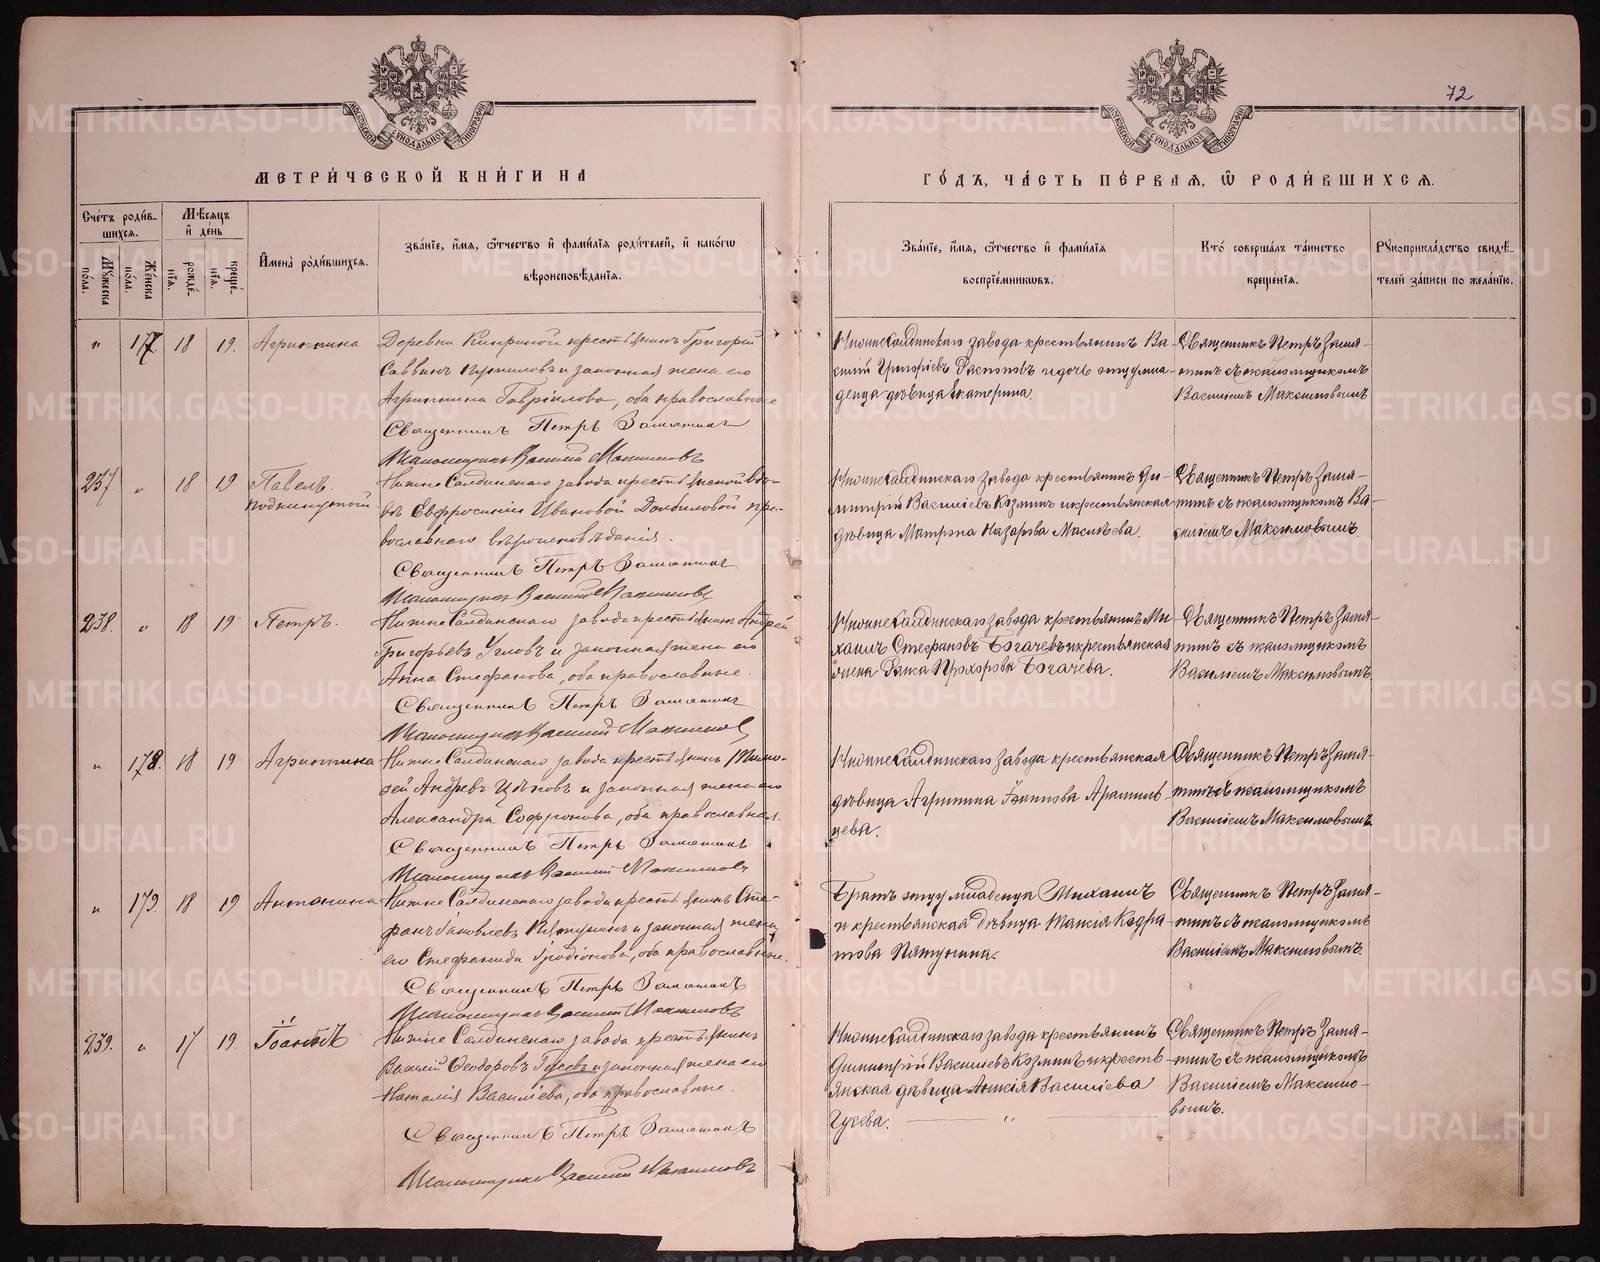 72
МЕТРИ́ЧЕСКОЙ КНИ́ГИ НА
ГО́ДЪ, ЧА́СТЬ ПЕ́РВАЯ, Ѡ РОДИ́ВШИХСЯ.
Сче́тъ роди́в-
шихся.
Му́жеска
пола.
Же́нска
по́ла.
Мѣ́сяцъ
и҆ де́нь
рожде́-
нїя.
креще́-
нїя.
И҆мена̀ роди́вшихся.
Зва́нїе, и҆́мя, ѻ҆́тчество и҆ фами́лїя роди́телей, и҆ како́гѡ
вѣроисповѣ́данїя.
Зва́нїе, и҆́мя, ѻ҆́тчество и҆ фами́лїя
воспрїе́мниковъ.
Кто̀ соверша́лъ та́инство
креще́нїя.
Рꙋкоприкла́дство свидѣ́-
телей за́писи по жела́нїю.
" 177 18 19. Агриппина
Деревни крестьянинъ Григорій
Саввинъ и законная жена его
Агриппина Гавріилова, оба православные
Священникъ Петръ Замятинъ
Псаломщикъ Василий Максимовъ
Нижнесалдинскаго завода крестьянинъ Ва-
дѣвица Екатерина.
Священникъ Петръ Замя-
тинъ съ псаломщикомъ
Василіемъ Максимовымъ
237 " 18 19 Павелъ
подкинутый
Нижне Салдинскаго завода крестьянской вдо-
вѣ Евфросиніи Ивановой пра-
вославнаго вѣроисповѣданія.
Священникъ Петръ Замятинъ
Псаломщикъ Василий Максимовъ
Нижнесалдинскаго завода крестьянинъ Ди-
митрій Василіевъ Козминъ и крестьянская
дѣвица Матрона Назарова
Священникъ Петръ Замя-
тинъ съ псаломщикомъ Ва-
силіемъ Максимовымъ.
238. " 18 19 Петръ.
Нижне Салдинскаго завода крестьянинъ Андрей
Григорьевъ Угловъ и законная жена его
Анна Стефанова, оба православные.
Священникъ Петръ Замятинъ
Псаломщикъ Василий Максимовъ
Нижнесалдинскаго завода крестьянинъ Ми-
хаилъ Стефановъ Богачевъ и крестьянская
жена Прохорова Богачева.
Священникъ Петръ Замя-
тинъ съ псаломщикомъ
Василіемъ Максимовымъ
" 178. 18 19 Агриппина
Нижне Салдинскаго завода крестьянинъ Тимо-
фей Андреевъ и законная жена его
Александра Софронова, оба православные.
Священникъ Петръ Замятинъ
Псаломщикъ Василий Максимовъ
Нижнесалдинскаго завода крестьянская
дѣвица Агриппина Іоаннова Арамиль-
цева.
Священникъ Петръ Замя-
тинъ съ псаломщикомъ
Василіемъ Максимовымъ
" 179. 18 19 Антонина
Нижне Салдинскаго завода крестьянинъ Сте-
фанъ Іаковлевъ Пятунинъ и законная жена
его Стефанида Іродіонова, оба православные.
Священникъ Петръ Замятинъ
Псаломщикъ Василий Максимовъ
Братъ этму младенца Михаилъ
и крестьянская дѣвица Таисія Кодра-
това Пятунина.
Священникъ Петръ Замя-
тинъ съ псаломщикомъ
Василіемъ Максимовымъ.
239. " 17 19. Іоаннъ
Нижне Салдинскаго завода крестьянинъ
Василий Ѳеодоровъ Гусевъ и законная жена его
Наталія Василіева, оба православные.
Священникъ Петръ Замятинъ
Псаломщикъ Василий Максимовъ
Нижнесалдинскаго завода крестьянинъ
Димитрій Василіевъ Козминъ и кресть-
янская дѣвица Анисія Василіева
Гусева. "
Священникъ Петръ Замя-
тинъ съ псаломщикомъ
Василіемъ Максимо-
вымъ.